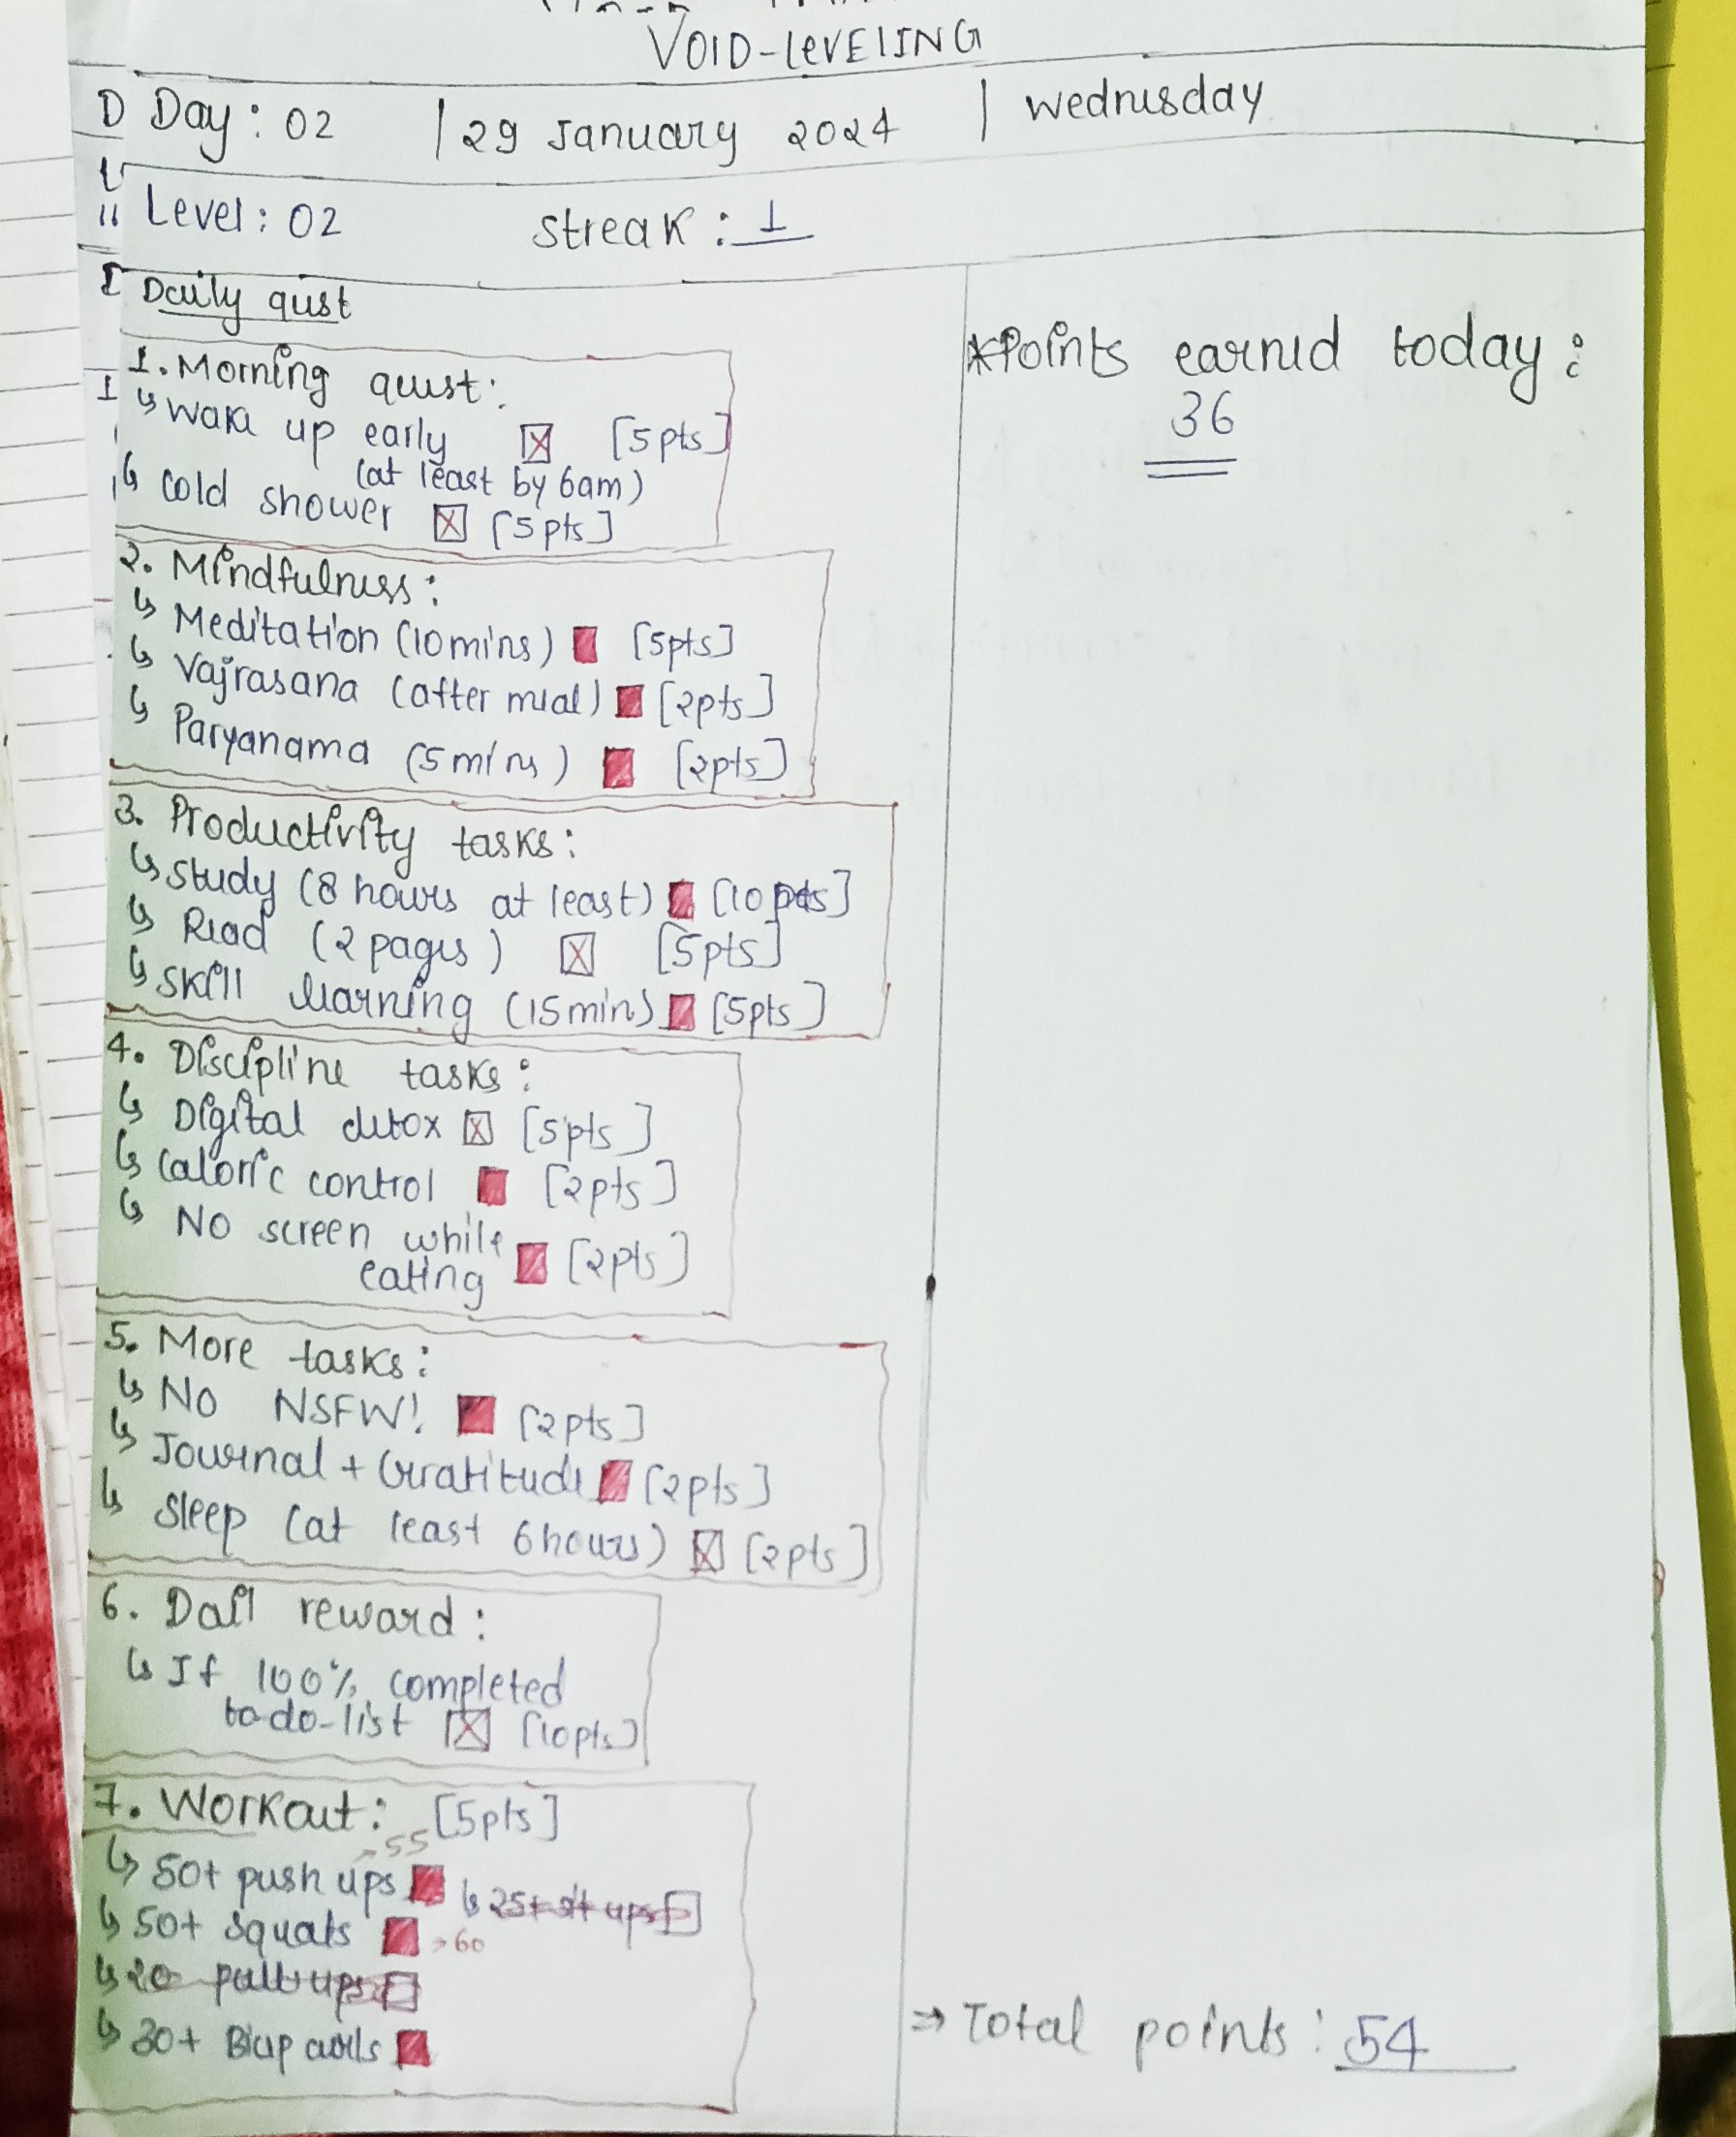 VOID-LEVELING
Day: 02 | 29 January 2024 | Wednesday
Level: 02 Streak: 1
Daily qust
1. Morning quest:
↳ Wake up early ☒ [5pts]
(at least by 6am)
↳ cold shower ☒ [5pts]
2. Mindfulness:
↳ Meditation (10mins) ■ [5pts]
↳ Vajrasana (after meal) ■ [2pts]
↳ Paryanama (5mins) ■ [2pts]
3. Productivity tasks:
↳ Study (8 hours at least) ■ [10pts]
↳ Read (2 pages) ☒ [5pts]
↳ Skill learning (15min) ■ [5pts]
4. Discipline tasks:
↳ Digital detox ☒ [5pts]
↳ Caloric control ■ [2pts]
↳ No screen while
eating ■ [2pts]
5. More tasks:
↳ NO NSFW! ■ [2pts]
↳ Journal + Gratitude ■ [2pts]
↳ Sleep (at least 6hours) ☒ [2pts]
6. Dail reward:
↳ If 100% completed
to-do-list ☒ [10pts]
7. Workout: [5pts]
→55
↳ 50+ push ups ■ ↳ 25+ sit ups □
↳ 50+ squats ■ →60
↳ 20 pull ups □
↳ 30+ Bicep curls ■
*Points earned today:
36
⇒ Total points: 54